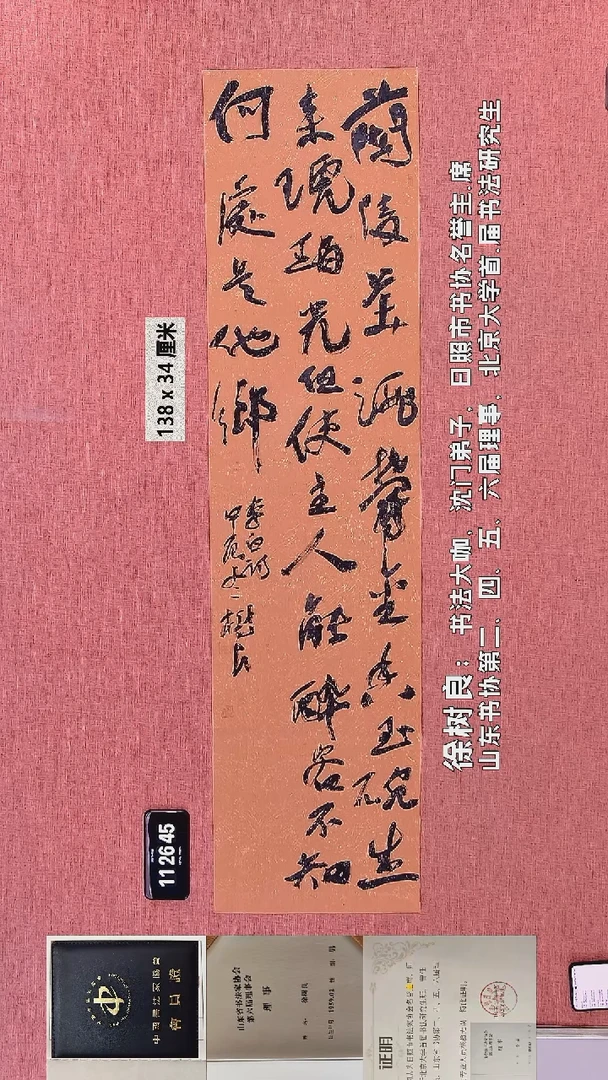 蘭陵美酒鬱金香玉碗盛
來琥珀光但使主人能醉客不知
何處是他鄉
李白詩
甲辰 樹良
138 x 34 厘米
徐树良：书法大咖、沈门弟子、日照市书协名誉主.席
山东书协第二、四、五、六届理事、北京大学首.届书法研究生
11 26 45
中國書法家協會
會員證
山东省书法家协会
第六届理事会
理 事
证明